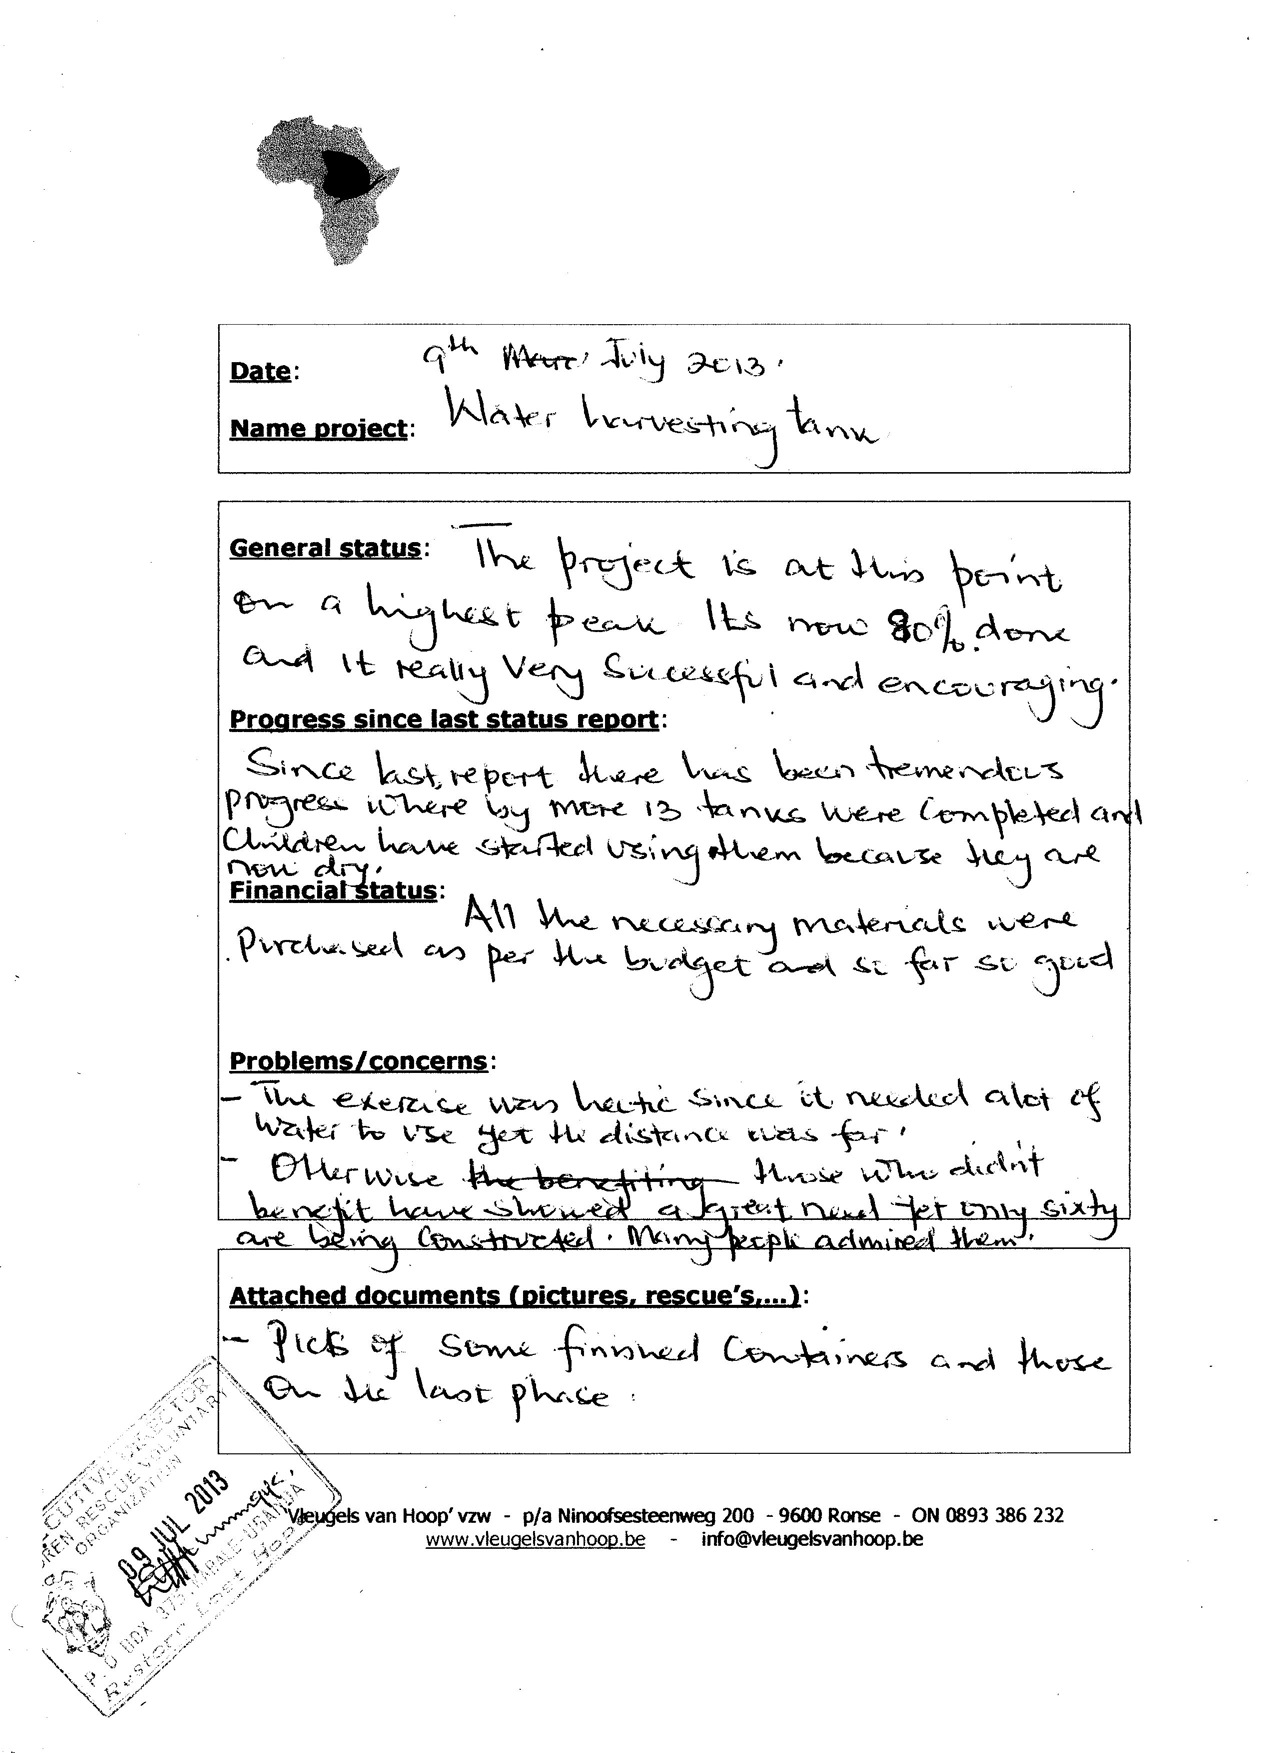 Date: 9th Marc July 2013.
Name project: Water harvesting tank
General status: The project is at this point
on a highest peak Its now 80%. done
and it really very successful and encouraging.
Progress since last status report:
Since last report there has been tremendous
progress where by more 13 tanks were completed and
children have started using them because they are
now dry.
Financial status: All the necessary materials were
purchased as per the budget and so far so good
Problems/concerns:
- The exercise was hectic since it needed alot of
water to use yet the distance was far.
- Otherwise the benefiting those who didn't
benefit have showed a great need yet only sixty
are being constructed. Many people admired them.
Attached documents (pictures, rescue's,...):
- Picts of some finished containers and those
on the last phase.
'Vleugels van Hoop' vzw - p/a Ninoofsesteenweg 200 - 9600 Ronse - ON 0893 386 232
www.vleugelsvanhoop.be - info@vleugelsvanhoop.be
DIRECTOR
RESCUE VOLUNTARY
ORGANIZATION
09 JUL 2013
P.O BOX
Restore Lost Hope